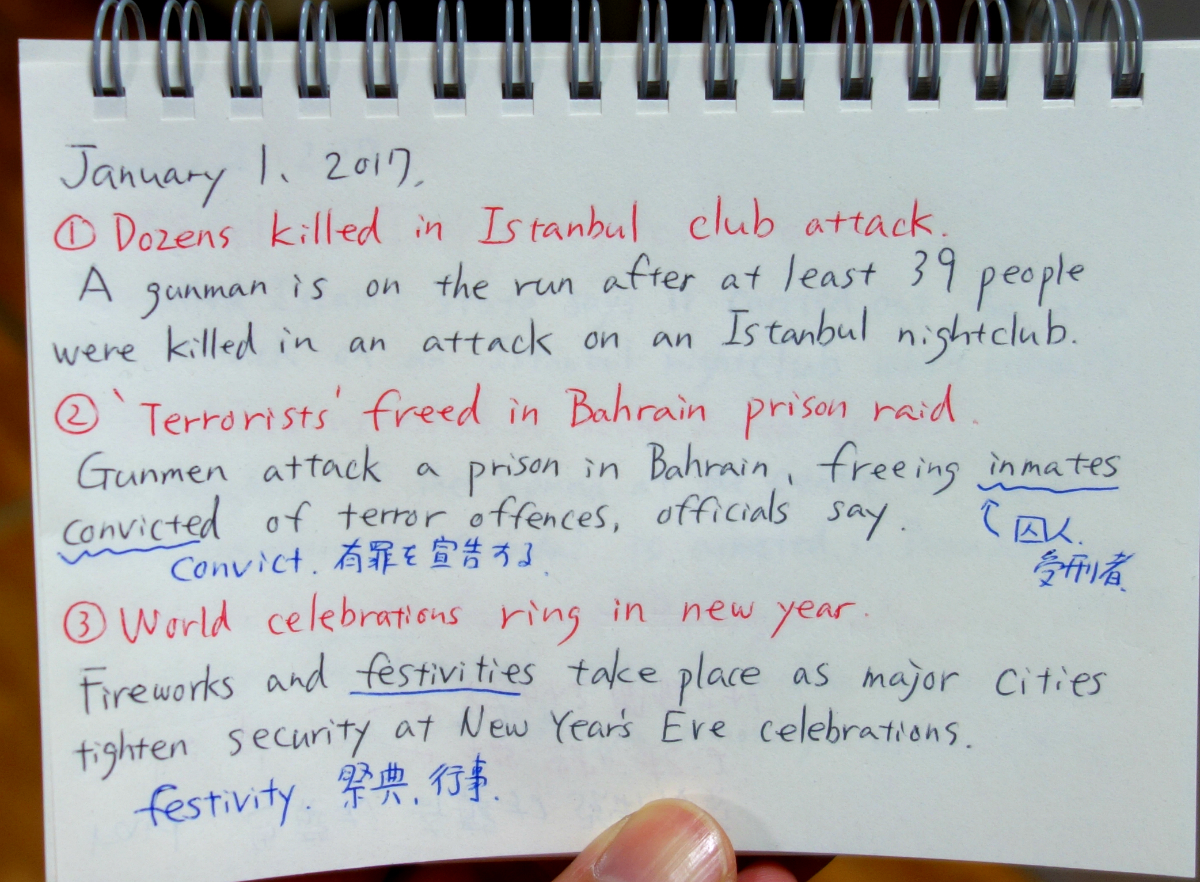 January 1、2017.
① Dozens killed in Istanbul club attack.
A gunman is on the run after at least 39 people
were killed in an attack on an Istanbul nightclub.
② 'Terrorists' freed in Bahrain prison raid.
Gunmen attack a prison in Bahrain, freeing inmates
convicted of terror offences, officials say.
囚人.
convict. 有罪を宣告する.
受刑者.
③ World celebrations ring in new year.
Fireworks and festivities take place as major cities
tighten security at New Year's Eve celebrations.
festivity. 祭典、行事.